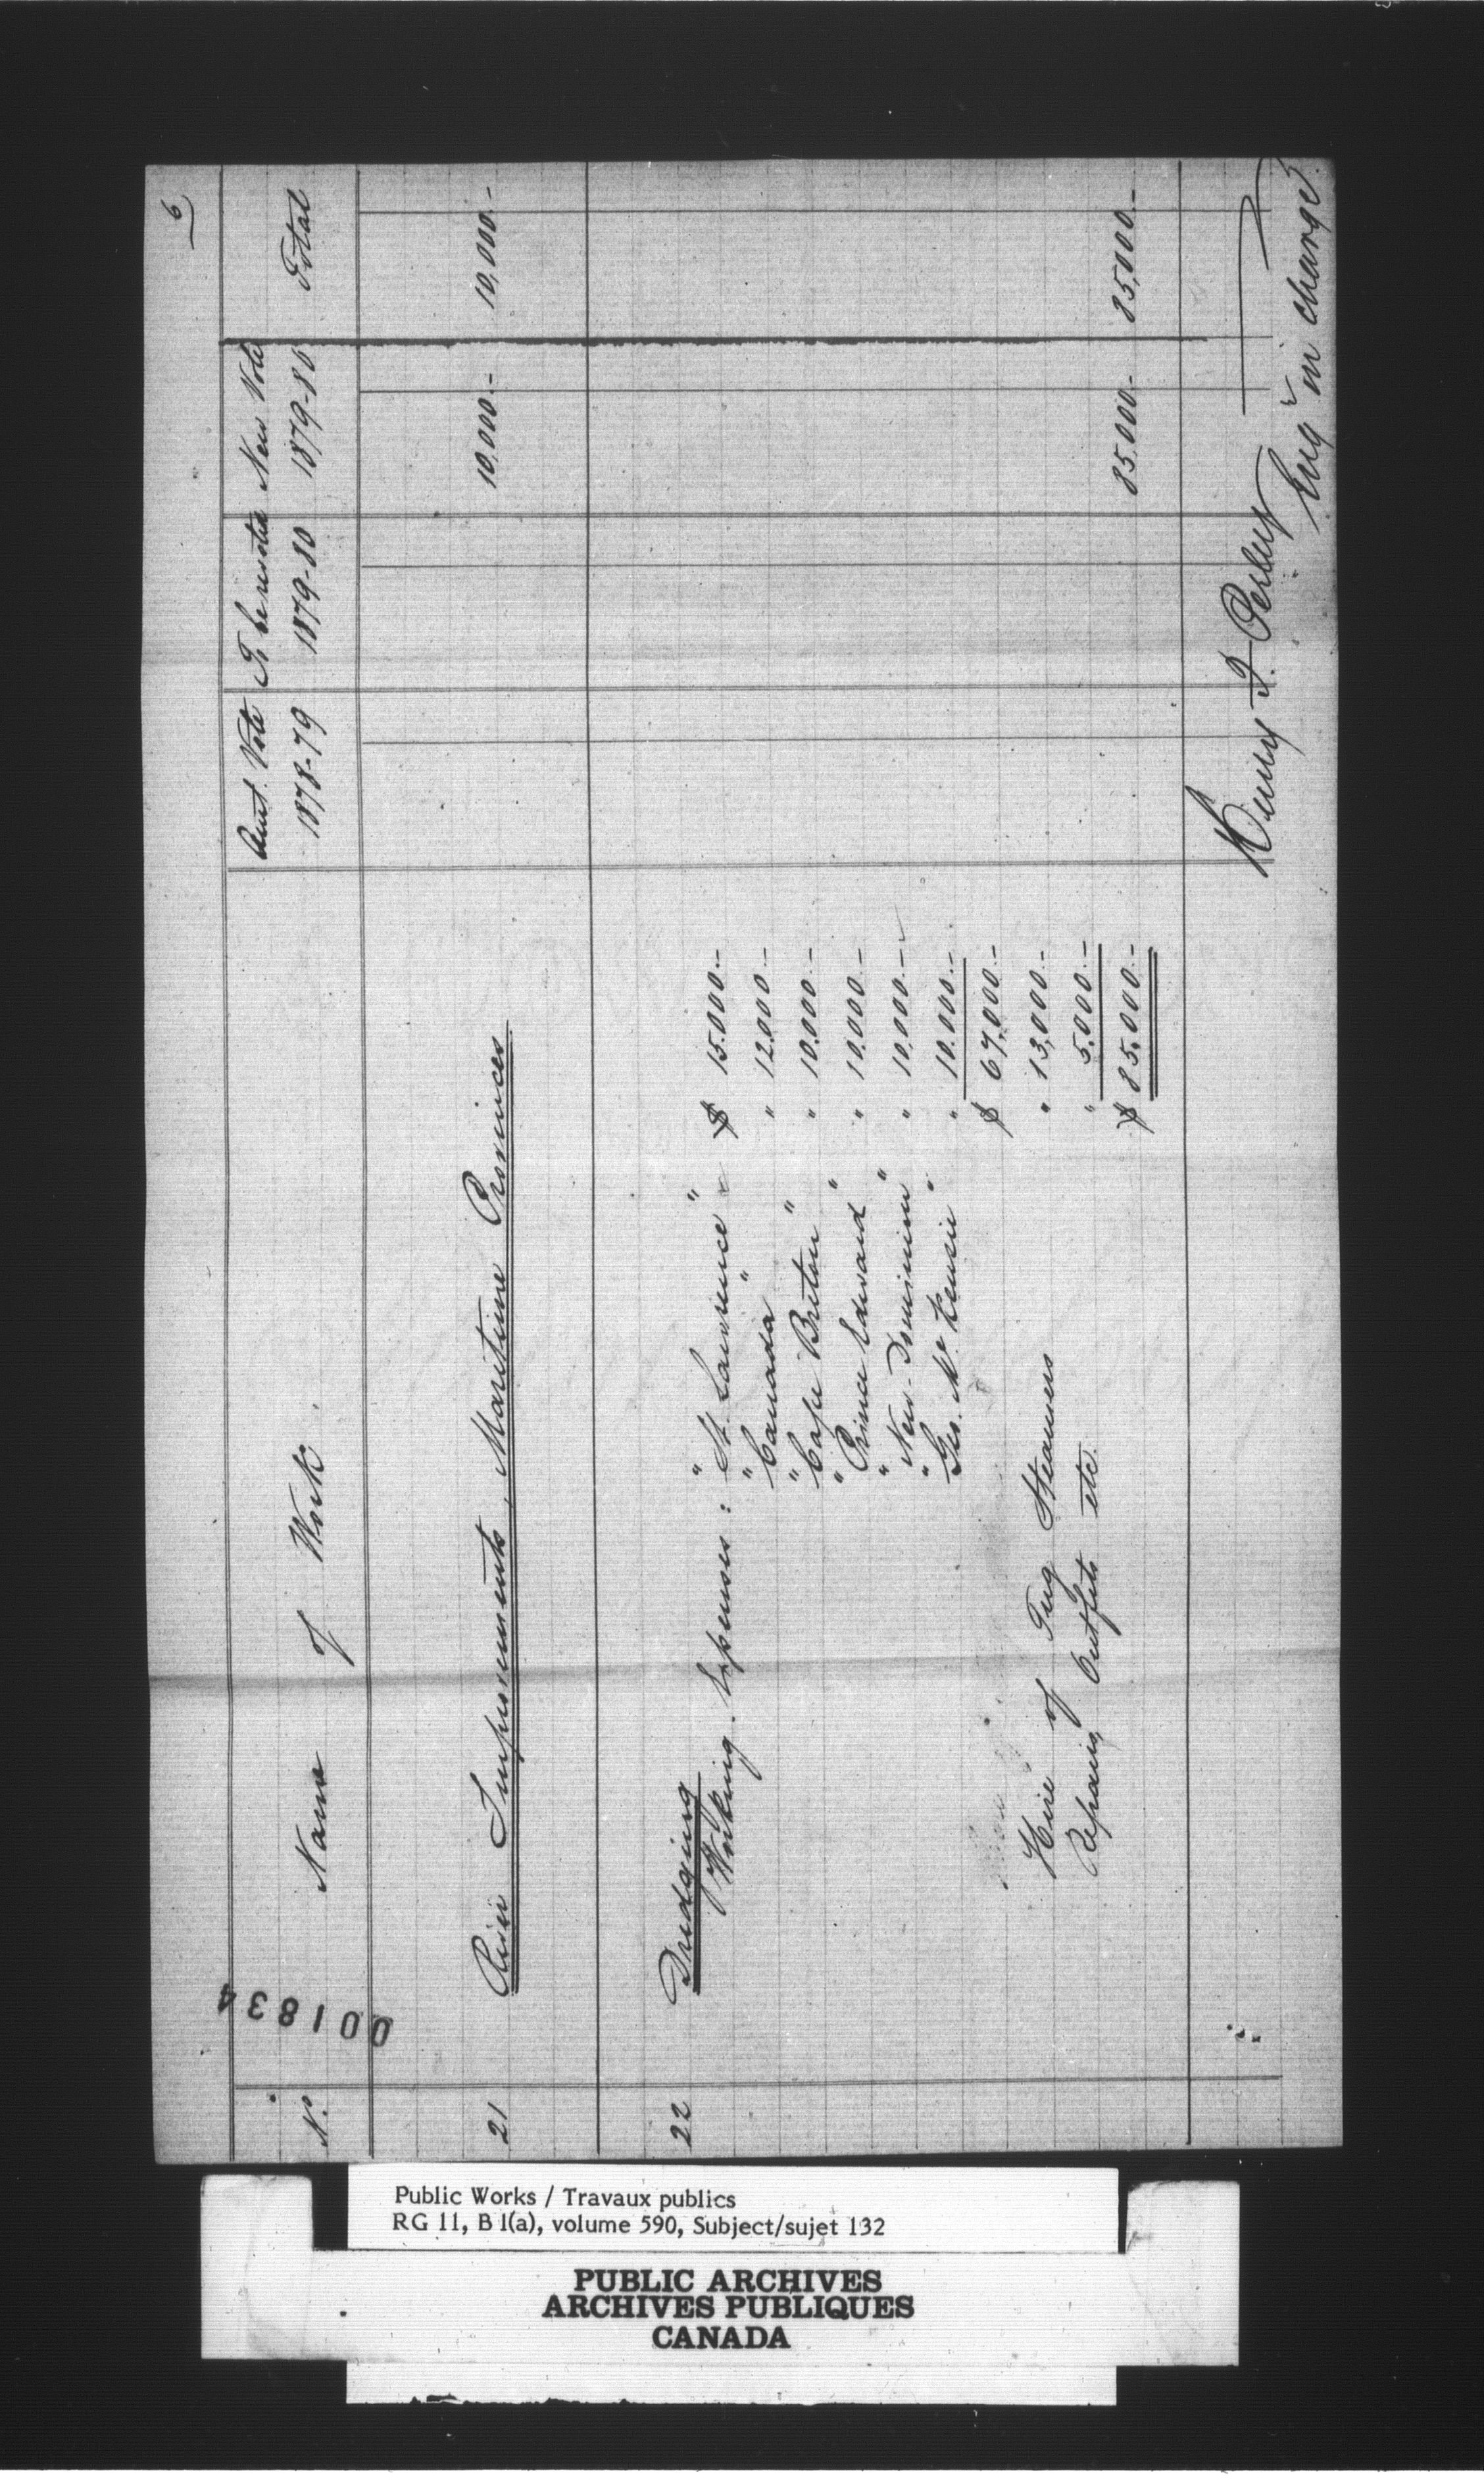 6
001834
N. Name of Work. Amt. Vote 1878-79 To be revoted 1879-80 New Vote 1879-80 Total
21 River Improvements, Maritime Provinces 10,000.- 10,000.-
22 Dredging
Working Expenses: "St. Lawrence" $ 15.000.-
"Canada" " 12.000.-
"Cape Breton" " 10.000.-
"Prince Edward" " 10.000.-
"New-Dominion" " 10,000.-
"Geo. McKenzie" " 10.000.-
$ 67,000.-
Hire of Tug Steamers " 13,000.-
Repairs, Outfits etc. " 5.000.-
$ 85.000.- 85,000.- 85,000.-
Henry F. Perley
Engr in charge
Public Works / Travaux publics
RG 11, B 1(a), volume 590, Subject/sujet 132
PUBLIC ARCHIVES
ARCHIVES PUBLIQUES
CANADA